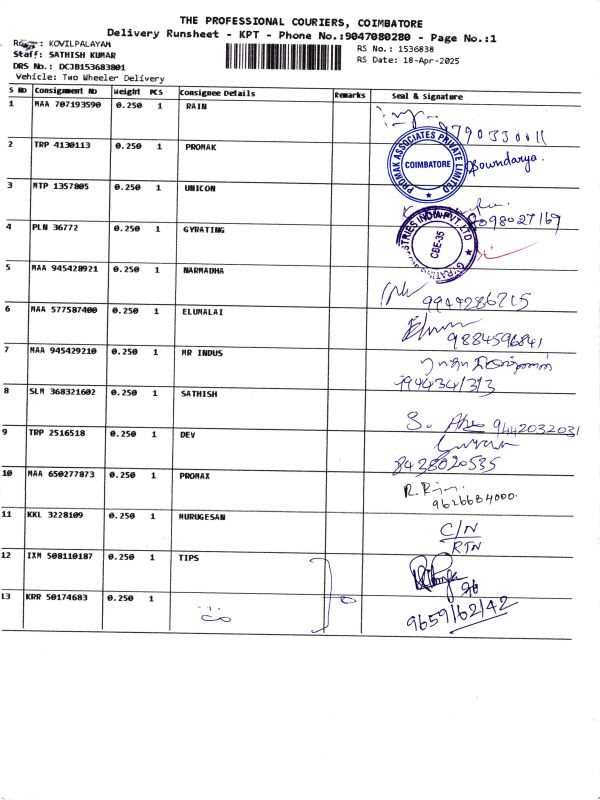 THE PROFESSIONAL COURIERS, COIMBATORE
Delivery Runsheet - KPT - Phone No.:9047080280 - Page No.:1
KOVILPALAYAM
RS No.: 1536838
Staff: SATHISH KUMAR
RS Date: 18-Apr-2025
DRS No.: DCJB153683801
Vehicle: Two Wheeler Delivery
S No Consignment No Weight PCS Consignee Details Remarks Seal & Signature
1 MAA 707193590 0.250 1 RAIN
8790330011
2 TRP 4130113 0.250 1 PROMAK
PROMAK ASSOCIATES PRIVATE LIMITED COIMBATORE
Soundarya.
3 MTP 1357805 0.250 1 UNICON
8098027169
4 PLN 36772 0.250 1 GYRATING
CBE-35
5 MAA 945428921 0.250 1 NARMADHA
9944286715
6 MAA 577587400 0.250 1 ELUMALAI
9884596841
7 MAA 945429210 0.250 1 MR INDUS
9994341313
8 SLM 368321602 0.250 1 SATHISH
S. 9442032031
9 TRP 2516518 0.250 1 DEV
8428020535
10 MAA 650277873 0.250 1 PROMAX
R. 9626684000.
11 KKL 3228109 0.250 1 MURUGESAN
C/N
RTN
12 IXM 508110187 0.250 1 TIPS
13 KRR 50174683 0.250 1
9659162142